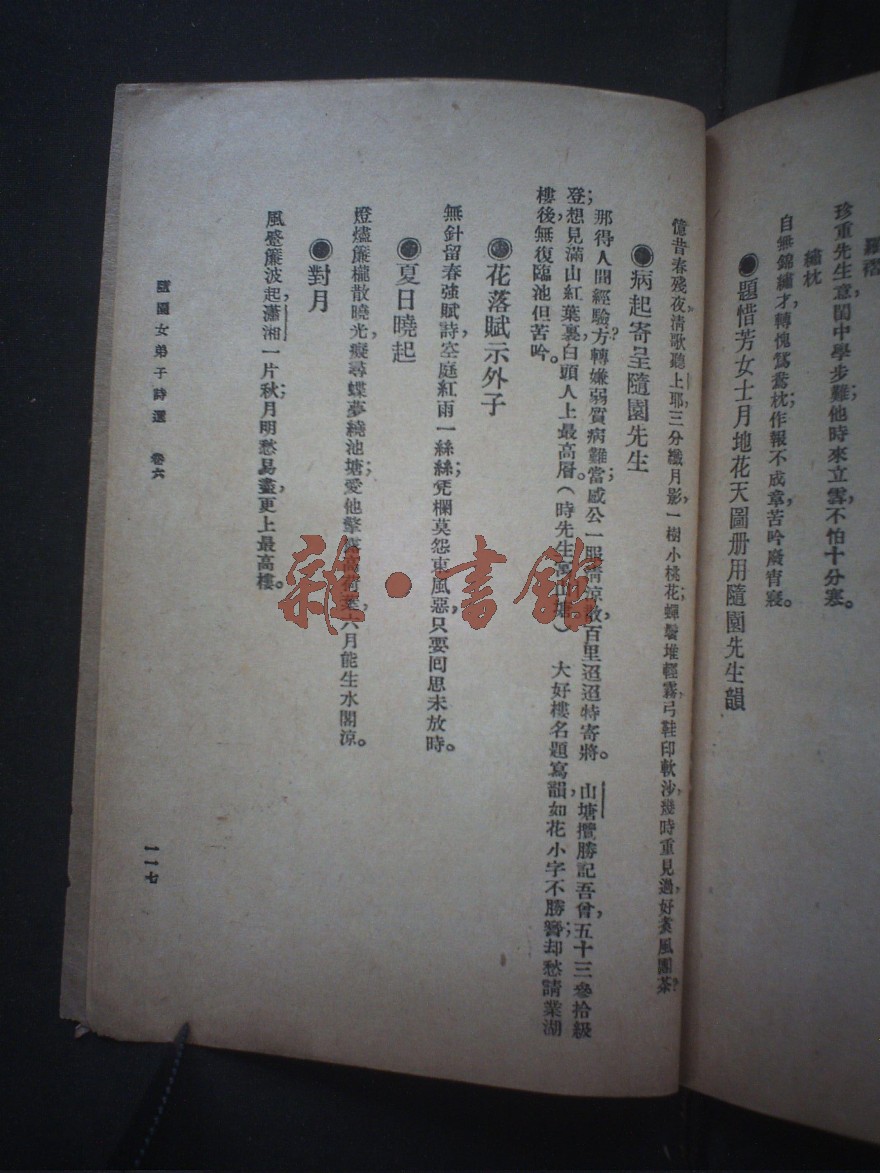 羅襠
珍重先生意,閨中學步難;他時來立雪,不怕十分寒。
繡枕
自無錦繡才,轉愧鴛鴦枕;作報不成章,苦吟廢宵寢。
●題惜芳女士月地花天圖册用隨園先生韻
億昔春殘夜,清歌聽上耶。三分纖月影,一樹小桃花。蟬鬢堆輕霧,弓鞋印軟沙。幾時重見過,好煑風團茶?
●病起寄呈隨園先生
那得人間經驗方?轉嫌弱質病難當;感公一服清涼散,百里迢迢特寄將。 山塘攬勝記吾曾,五十三參拾級
登;想見滿山紅葉裏,白頭人上最高層。(時先生寓山塘) 大好樓名題寫韻,如花小字不勝簪;却愁請業湖
樓後,無復臨池但苦吟。
●花落賦示外子
無針留春強賦詩,空庭紅雨一絲絲;凭欄莫怨東風惡,只要囘思未放時。
●夏日曉起
燈燼簾櫳散曉光,癡尋蝶夢繞池塘;愛他擎露高荷葉,六月能生水閣涼。
●對月
風壓簾波起,瀟湘一片秋;月明愁易盡,更上最高樓。
隨園女弟子詩選 卷六
一一七
雜·書館